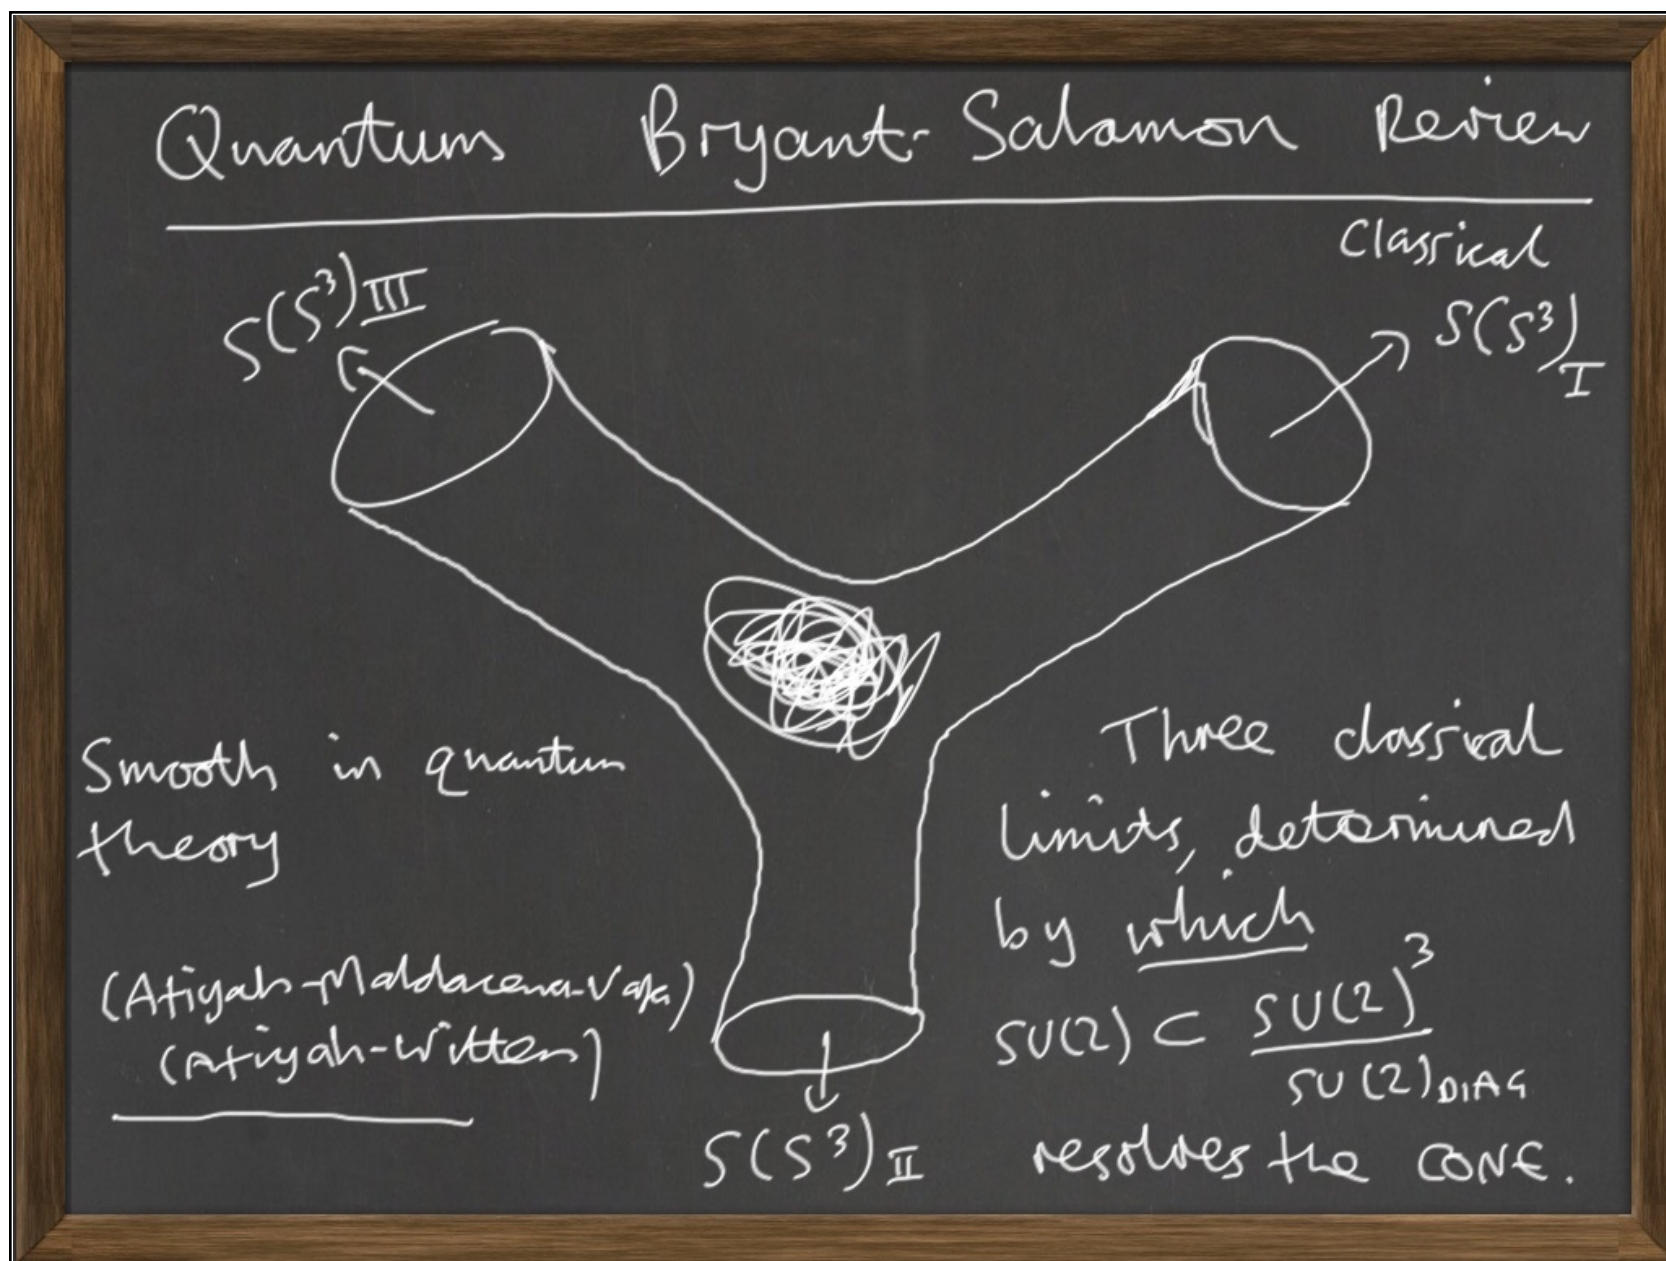 Quantum Bryant-Salamon Review
Classical
S(S³)III
S(S³)I
Smooth in quantum
theory
(Atiyah-Maldacena-Vafa)
(Atiyah-Witten)
S(S³)II
Three classical
limits, determined
by which
SU(2) ⊂ SU(2)³ / SU(2)DIAG
resolves the CONE.